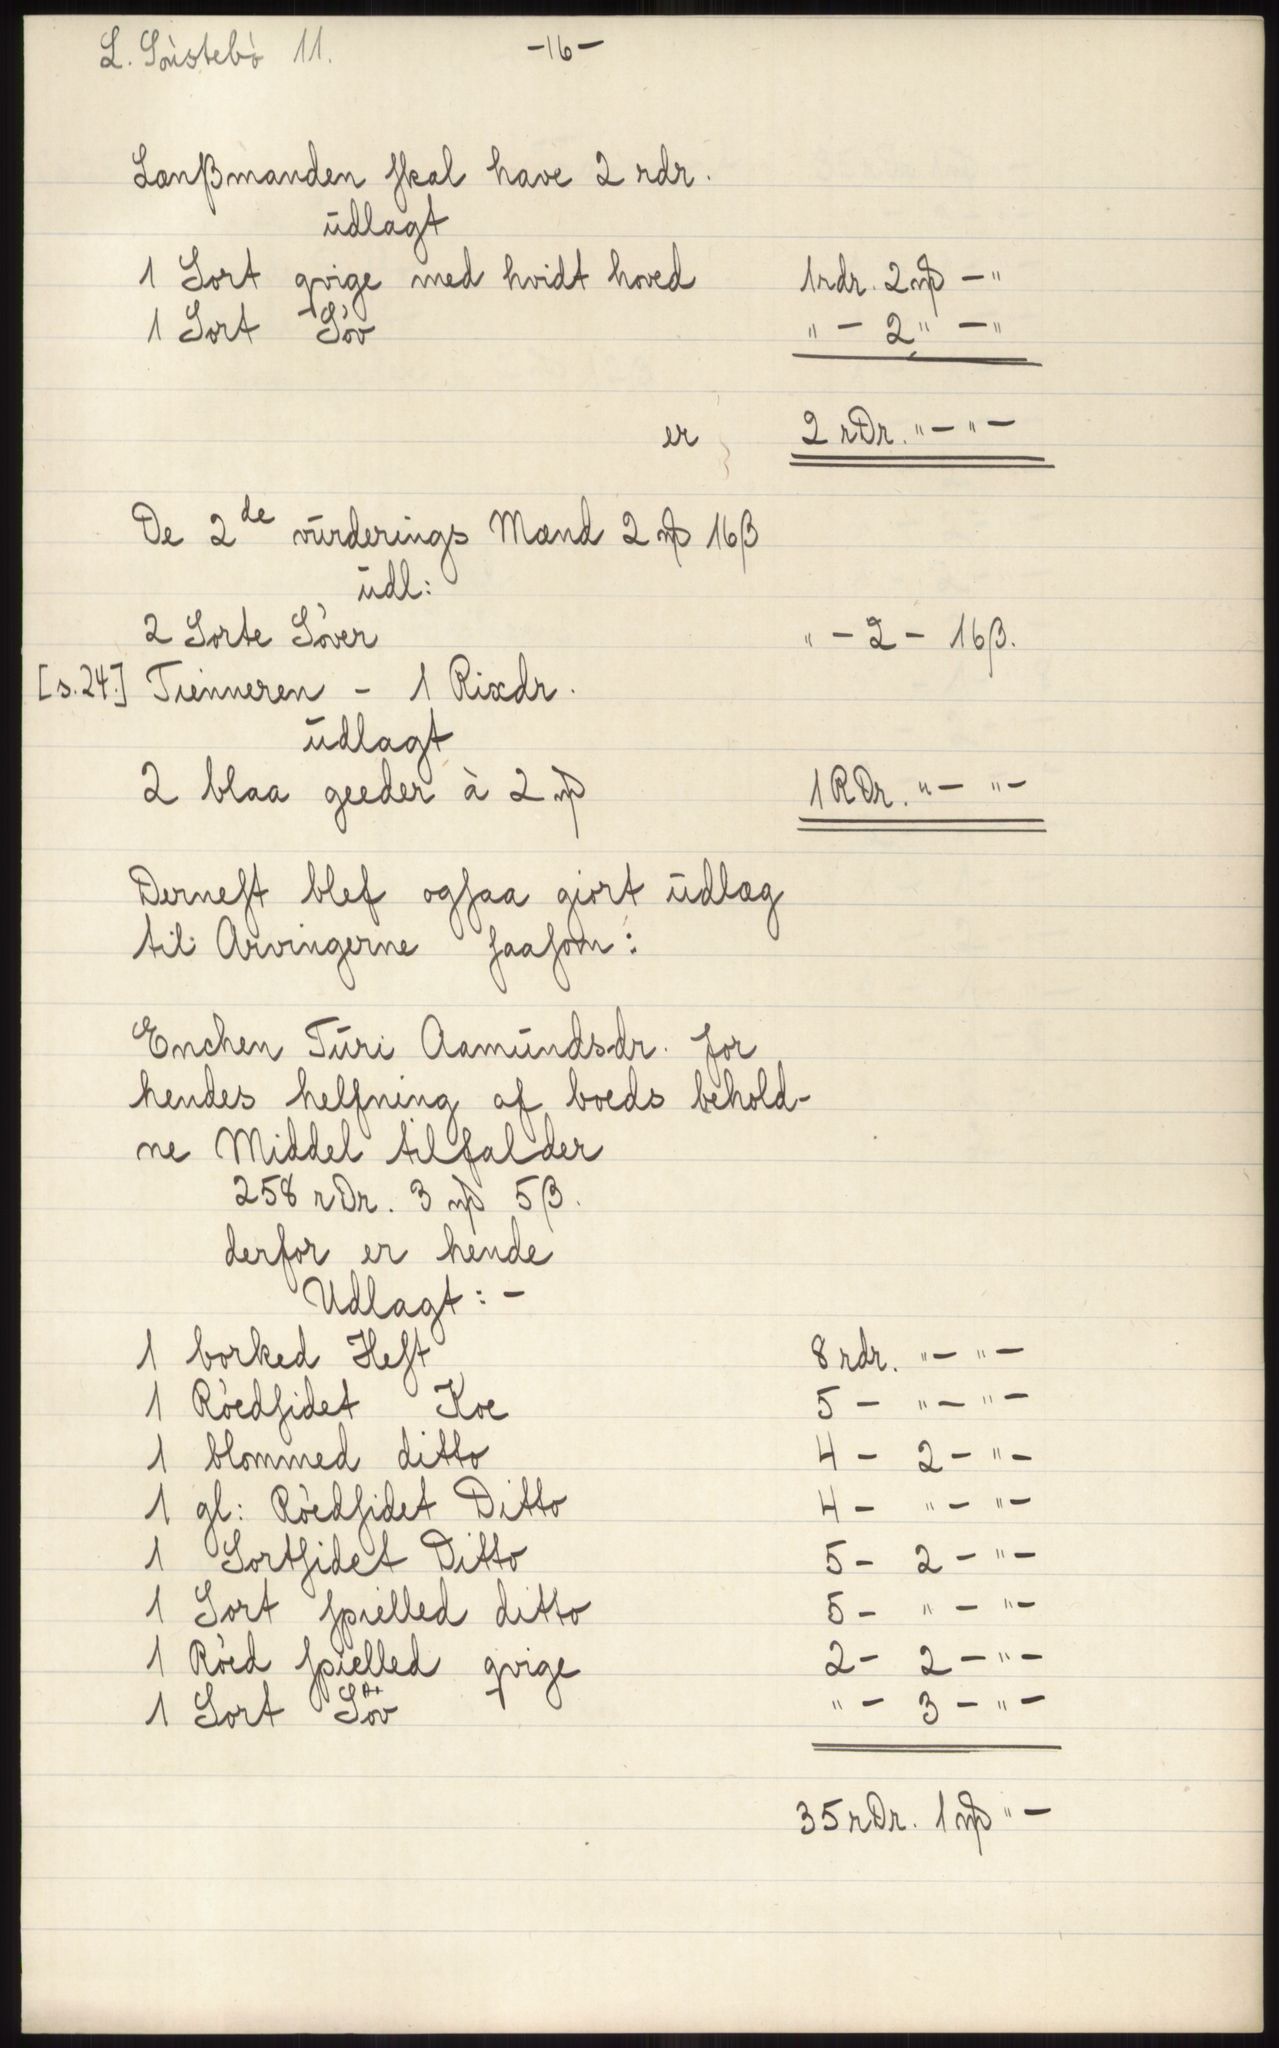 L. Söustebö 11. -16-
Lænßmanden skal have 2 rdr.
udlagt
1 Sort qvige med hvidt hoved 1rdr. 2 mþ - "
1 Sort Söv " - 2 " - "
er 2 rDr. " - " -
De 2de vurderings Mænd 2 mþ 16β
udl:
2 Sorte Söver " - 2 - 16β.
[s.24.] Tienneren - 1 Rixdr.
udlagt
2 blaa geeder à 2 mþ 1 RDr. " - " -
Dernest blef ogsaa giort udlæg
til Arvingerne saasom:
Enchen Turi Aamundsdr. for
hendes helfning af boeds behold-
ne Middel tilfalder
258 rDr. 3 mþ 5β.
derfor er hende
Udlagt: -
1 borked Hest 8 rdr. " - " -
1 Röedsidet Koe 5 - " - " -
1 blommed ditto 4 - 2 - " -
1 gl: Röedsidet Ditto 4 - " - " -
1 Sortsidet Ditto 5 - 2 - " -
1 Sort spielled ditto 5 - " - " -
1 Röed spielled qvige 2 - 2 - " -
1 Sort Söv " - 3 - " -
35 rDr. 1 mþ " -